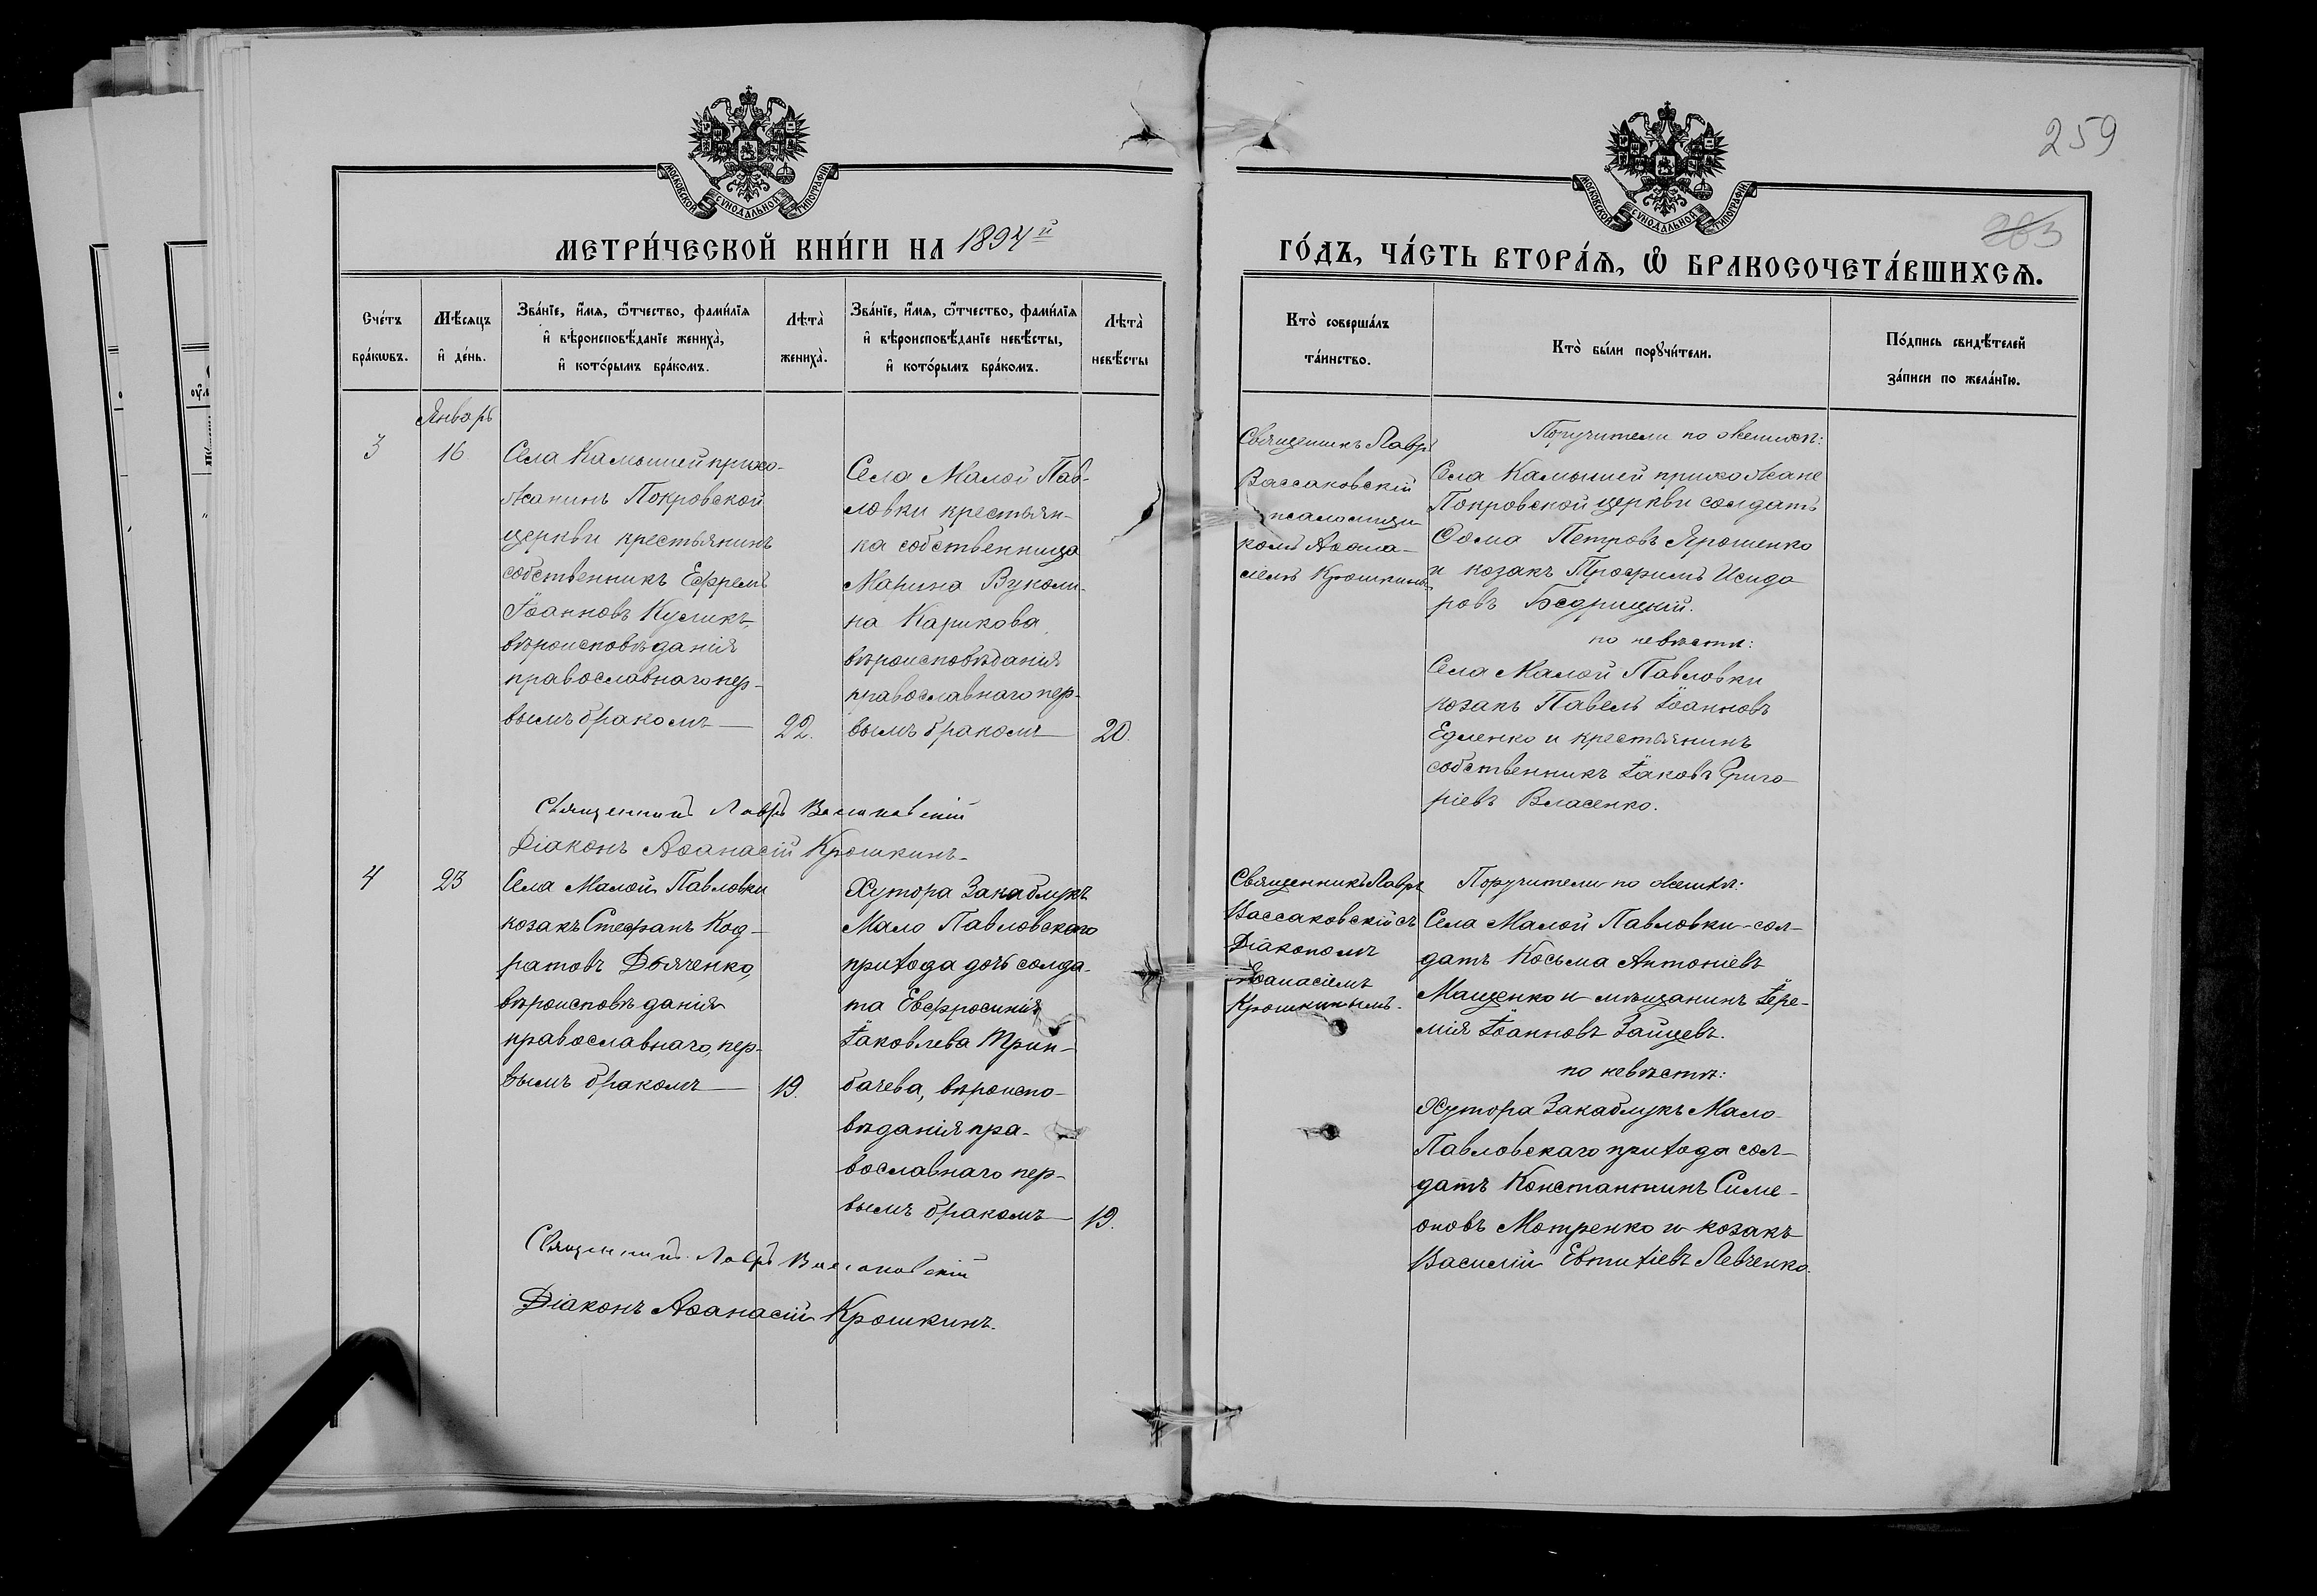 259
203
МОСКОВСКОЙ СѴНОДАЛЬНОЙ ТИПОГРАФІИ
МОСКОВСКОЙ СѴНОДАЛЬНОЙ ТИПОГРАФІИ
МЕТРИ́ЧЕСКОЙ КНИ́ГИ НА 1894й
ГО́ДЪ, ЧА́СТЬ ВТОРА́Ѧ, Ѽ БРАКОСОЧЕТА́ВШИХСѦ.
Сче́тъ
бра́кѡвъ.
Мѣ́сѧцъ
и҆ де́нь.
Зва́нїе, и҆́мѧ, ѻ҆́тчество, фами́лїѧ
и҆ вѣроисповѣ́данїе жениха̀,
и҆ кото́рымъ бра́комъ.
Лѣта̀
жениха̀.
Зва́нїе, и҆́мѧ, ѻ҆́тчество, фами́лїѧ
и҆ вѣроисповѣ́данїе невѣ́сты,
и҆ кото́рымъ бра́комъ.
Лѣта̀
невѣ́сты
Кто̀ соверша́лъ
та́инство.
Кто̀ бы́ли порꙋчи́тели.
По́дпись свидѣ́телей
за́писи по жела́нїю.
Январь
3
16
Села Камышей прихо-
жанинъ Покровской
церкви крестьянинъ
собственникъ Ефремъ
Іоанновъ Куликъ,
вѣроисповѣданія
православнаго пер-
вымъ бракомъ —
22.
Села Малой Пав-
ловки крестьян-
ка собственница
Марина Вуколи-
на Карикова,
вѣроисповѣданія
православнаго пер-
вымъ бракомъ —
20.
Священникъ Лавръ Вассаковскій
Діаконъ Аѳанасій Крошкинъ.
Священникъ Лавръ
Вассаковскій
псаломщи-
комъ Аѳана-
сіемъ Крошкинымъ
Поручители по женихѣ:
Села Камышей прихожане
Покровской церкви солдатъ
Ѳома Петровъ Ярошенко
и козакъ Трофимъ Исидо
ровъ Бедрицкій.
по невѣстѣ:
Села Малой Павловки
козакъ Павелъ Іоанновъ
Едленко и крестьянинъ
собственникъ Іаковъ Григо
ріевъ Власенко.
4
23
Села Малой Павловки
козакъ Стефанъ Код-
ратовъ Дьяченко,
вѣроисповѣданія
православнаго, пер-
вымъ бракомъ —
19.
Хутора Закаблукъ
Мало Павловскаго
прихода дочь солда-
та Евфросинія
Іаковлева Трин-
бачева, вѣроиспо-
вѣданія пра-
вославнаго пер-
вымъ бракомъ —
19.
Священникъ Лавръ Вассаковскій
Діаконъ Аѳанасій Крошкинъ.
Священникъ Лавръ
Вассаковскій съ
Діакономъ
Аѳанасіемъ
Крошкинымъ.
Поручители по женихѣ:
Села Малой Павловки сол-
датъ Косьма Антоніевъ
Мащенко и мѣщанинъ Іере-
мія Іоанновъ Зайцевъ.
по невѣстѣ:
Хутора Закаблукъ Мало
Павловскаго прихода сол-
датъ Константинъ Симе-
оновъ Мотренко и козакъ
Василій Евтихіевъ Левченко.